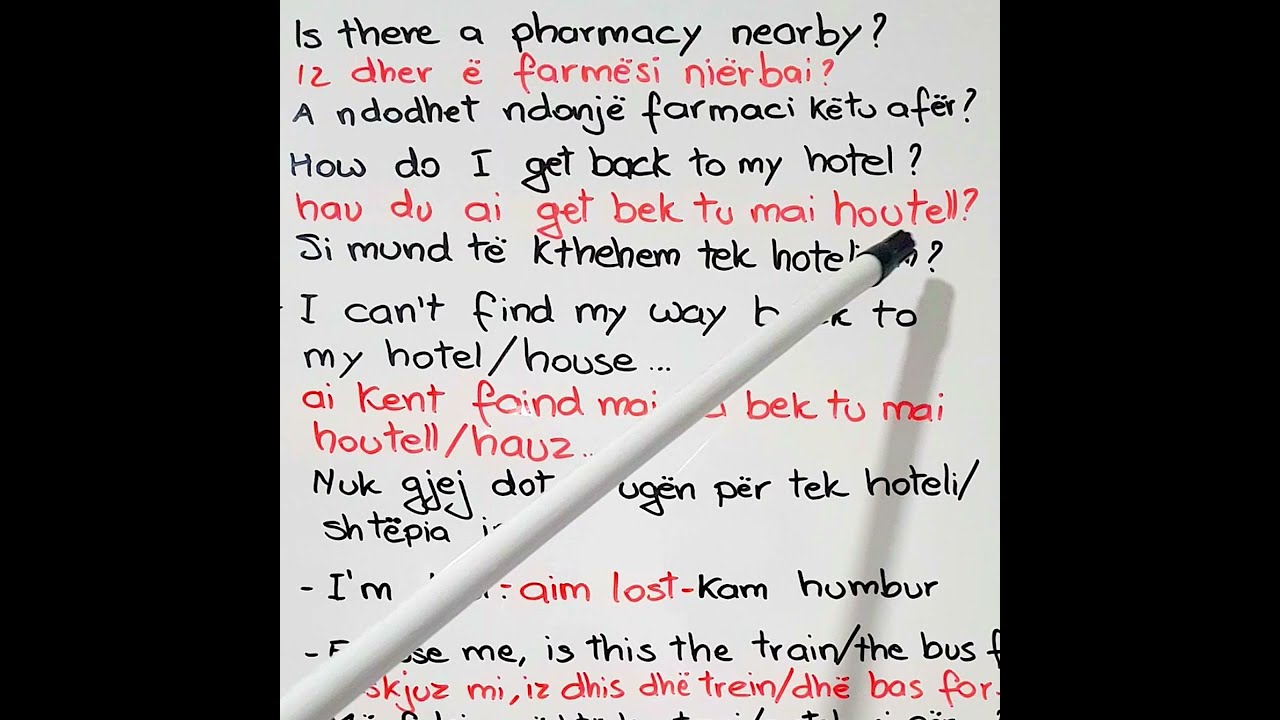 Is there a pharmacy nearby?
Iz dher ë farmësi niërbai?
A ndodhet ndonjë farmaci këtu afër?
How do I get back to my hotel?
hau du ai get bek tu mai houtell?
Si mund të kthehem tek ?
I can't find my way to
my hotel/house...
ai kent faind bek tu mai
houtell/hauz...
Nuk gjej dot për tek hoteli/
shtëpia
- I'm - aim lost - Kam humbur
- me, is this the train/the bus
mi, iz dhis dhë trein/dhë bas for